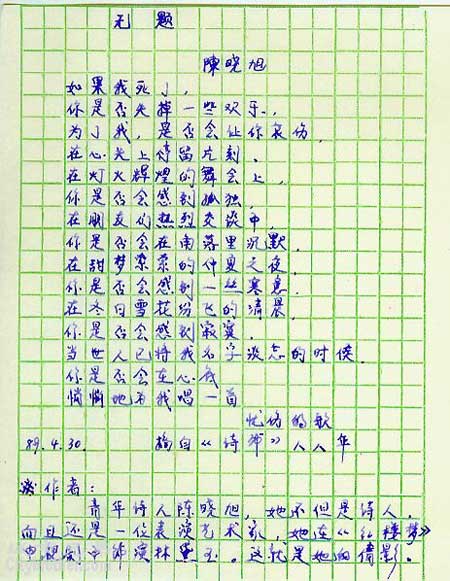 无题
陳晓旭
如果我死了，
你是否失掉一些欢乐，
为了我，是否会让你哀伤，
在心头上停留片刻。
在灯火辉煌的舞会上，
你是否会感到孤独，
在朋友们热烈交谈中，
你是否会在角落里沉默。
在甜梦萦萦的仲夏之夜，
你是否会感到一丝寒意，
在冬日雪花纷飞的清晨，
你是否会感到寂寞。
当世人已将我名字淡忘的时候，
你是否会在心底
悄悄地为我唱一首
忧伤的歌
89.4.30. 摘自《诗笺》人人华
谈作者：
青年诗人陈晓旭，她不但是诗人，
而且还是一位表演艺术家，她在《红楼梦》
电视剧中饰演林黛玉。这就是她的倩影。